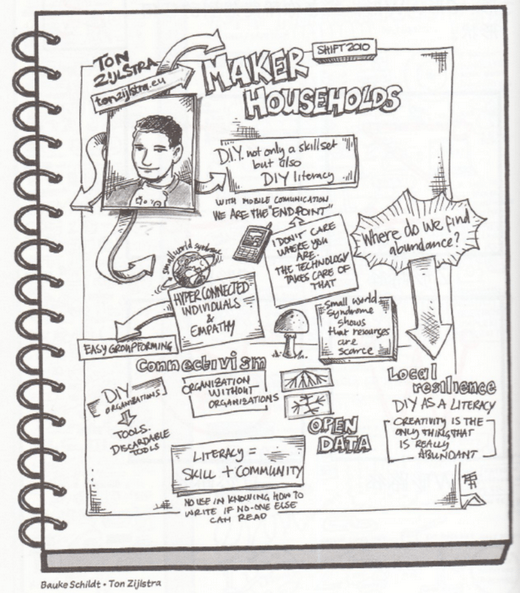 TON
ZIJLSTRA
tonzijlstra.eu
SHIFT 2010
MAKER
HOUSEHOLDS
D.I.Y. not only a skillset
but also
DIY literacy
WITH MOBILE COMUNICATION
WE ARE THE "ENDPOINT"
I DON'T CARE
WHERE YOU
ARE.
THE TECHNOLOGY
TAKES CARE OF
THAT
Where do we find
abundance?
small world syndrome
HYPERCONNECTED
INDIVIDUALS
&
EMPATHY
EASY GROUPFORMING
small world
syndrome
shows
that resources
are
scarce
Connectivism
ORGANISATION
WITHOUT
ORGANISATIONS
DIY
ORGANISATIONS
TOOLS.
DISCARDABLE
TOOLS
OPEN
DATA
Local
resilience
DIY AS A LITERACY
CREATIVITY IS THE
ONLY THING THAT
IS REALLY
ABUNDANT
LITERACY =
SKILL + COMMUNITY
NO USE IN KNOWING HOW TO
WRITE IF NO-ONE ELSE
CAN READ
Bauke Schildt • Ton Zijlstra